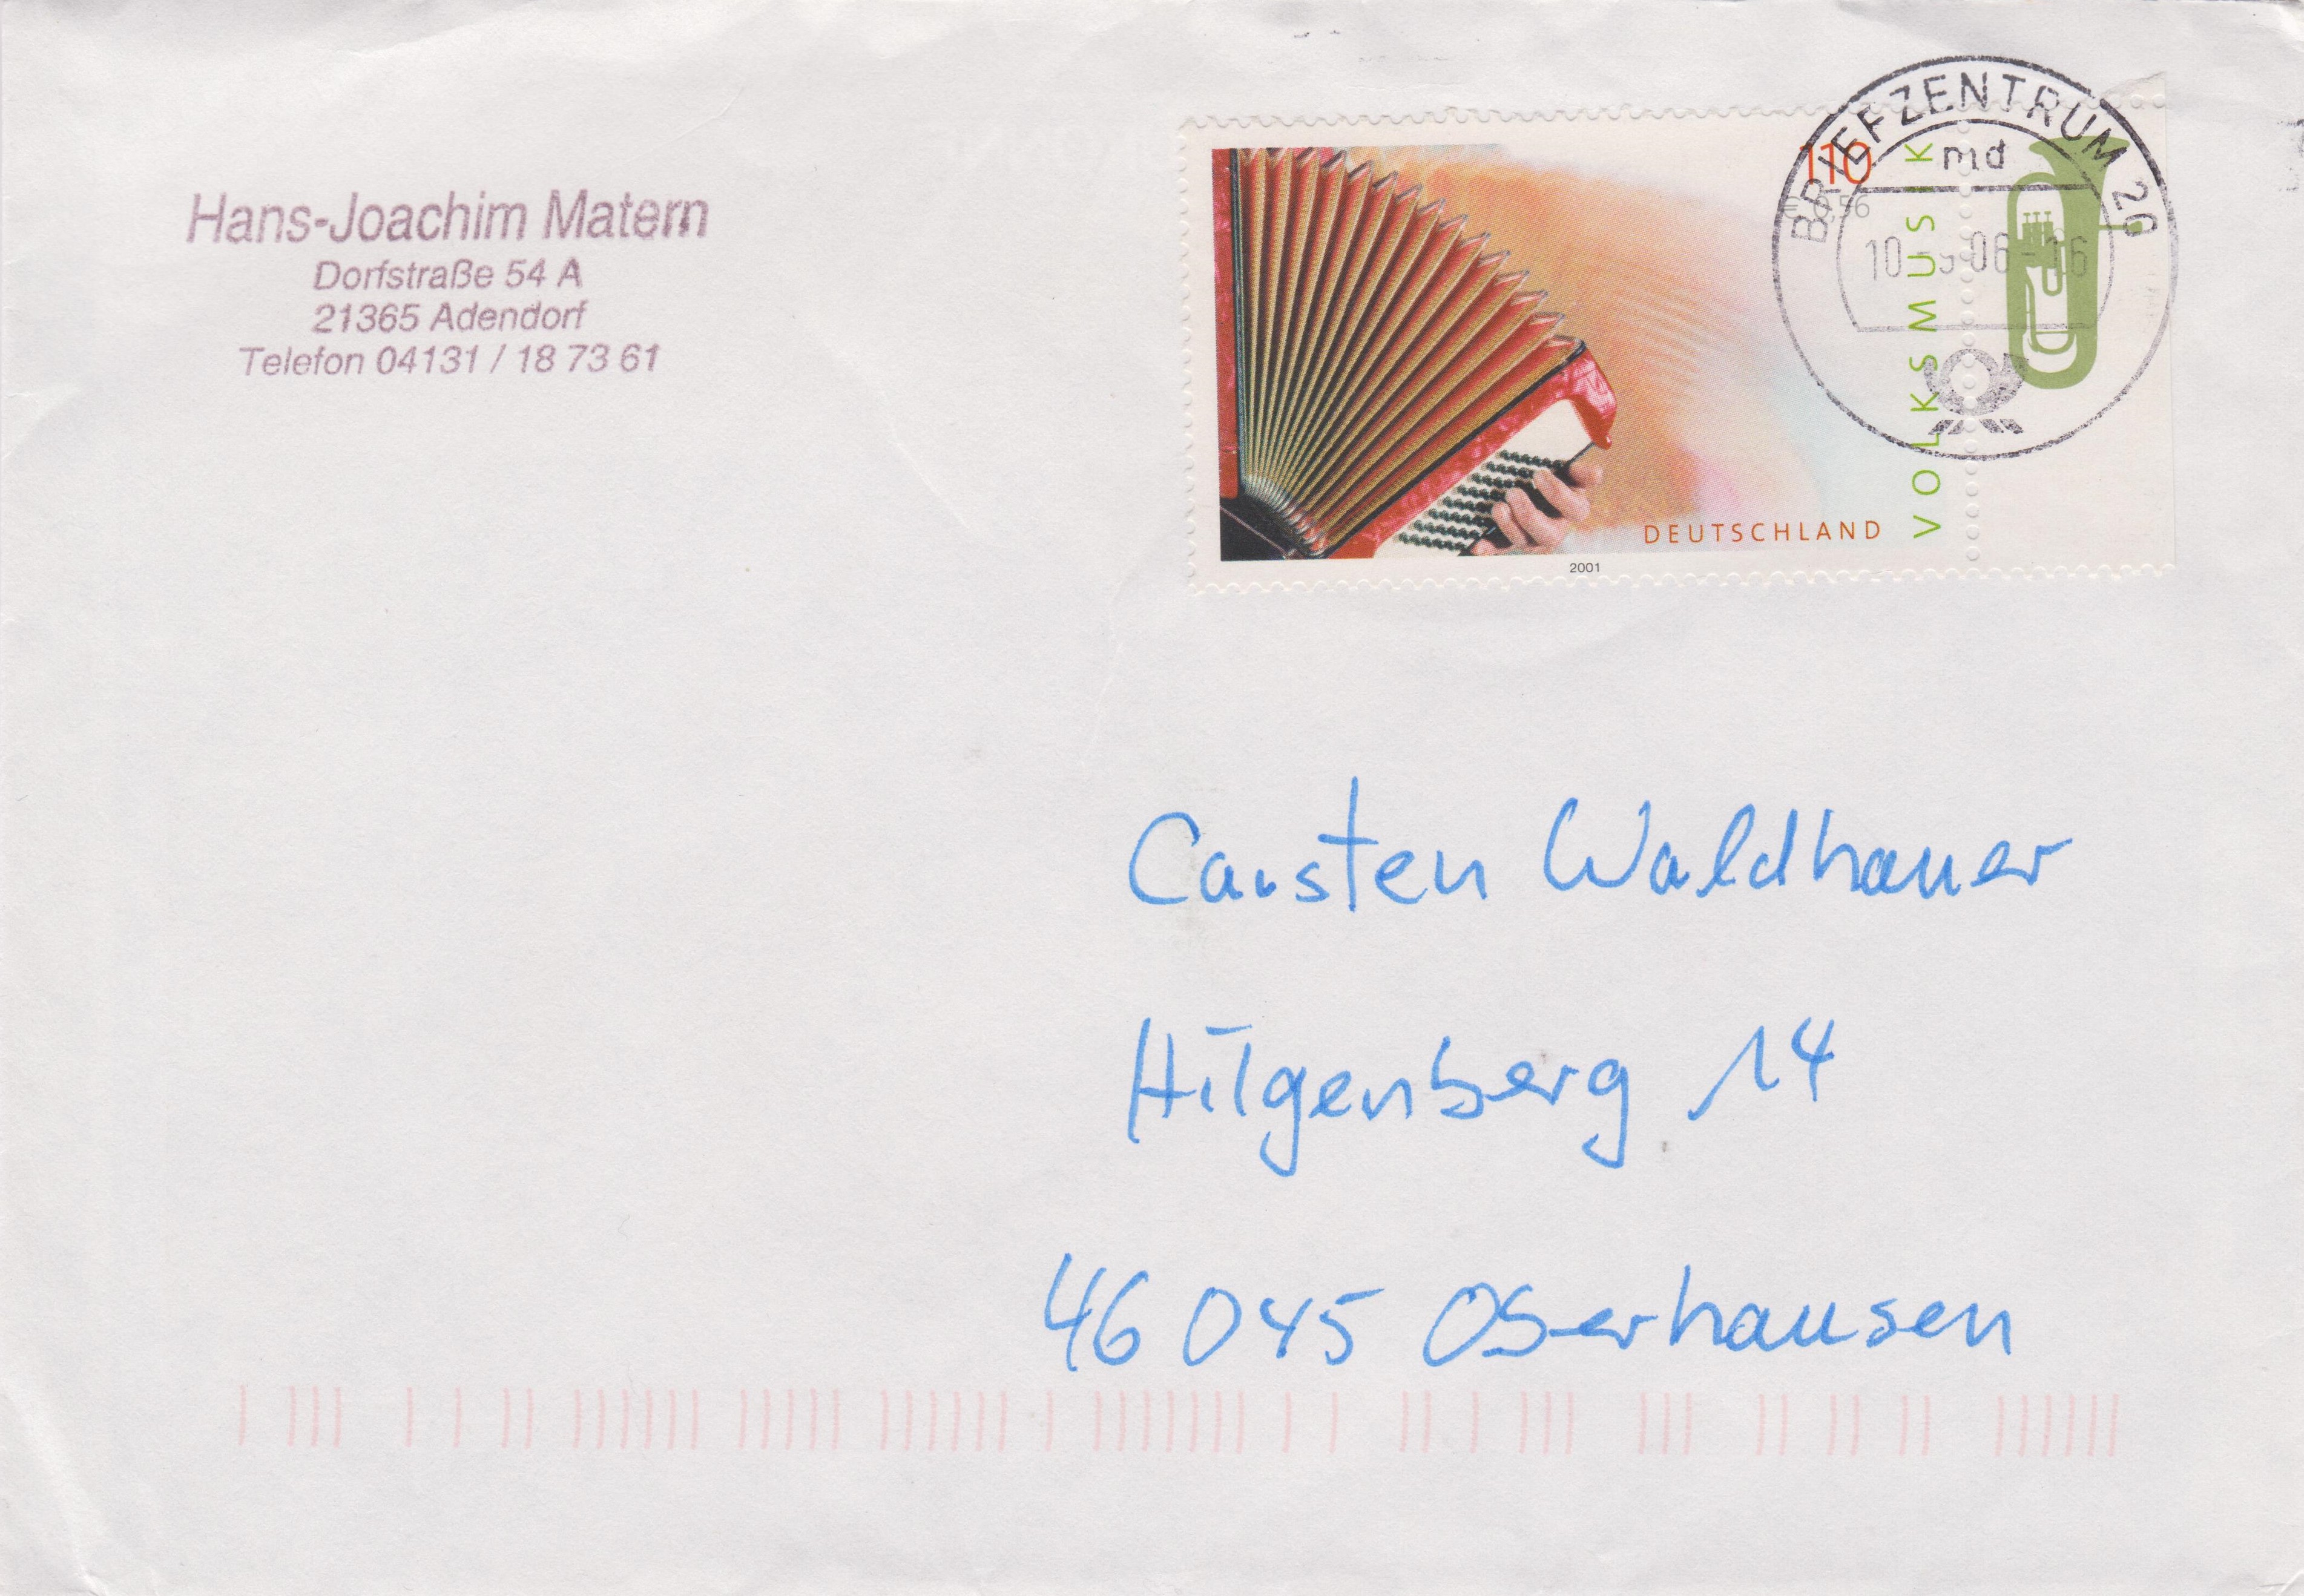 Hans-Joachim Matern
Dorfstraße 54 A
21365 Adendorf
Telefon 04131 / 18 73 61
110
€ 0,56
VOLKSMUSIK
DEUTSCHLAND
2001
BRIEFZENTRUM 20
md
Carsten Waldhauer
Hilgenberg 14
46045 Oberhausen